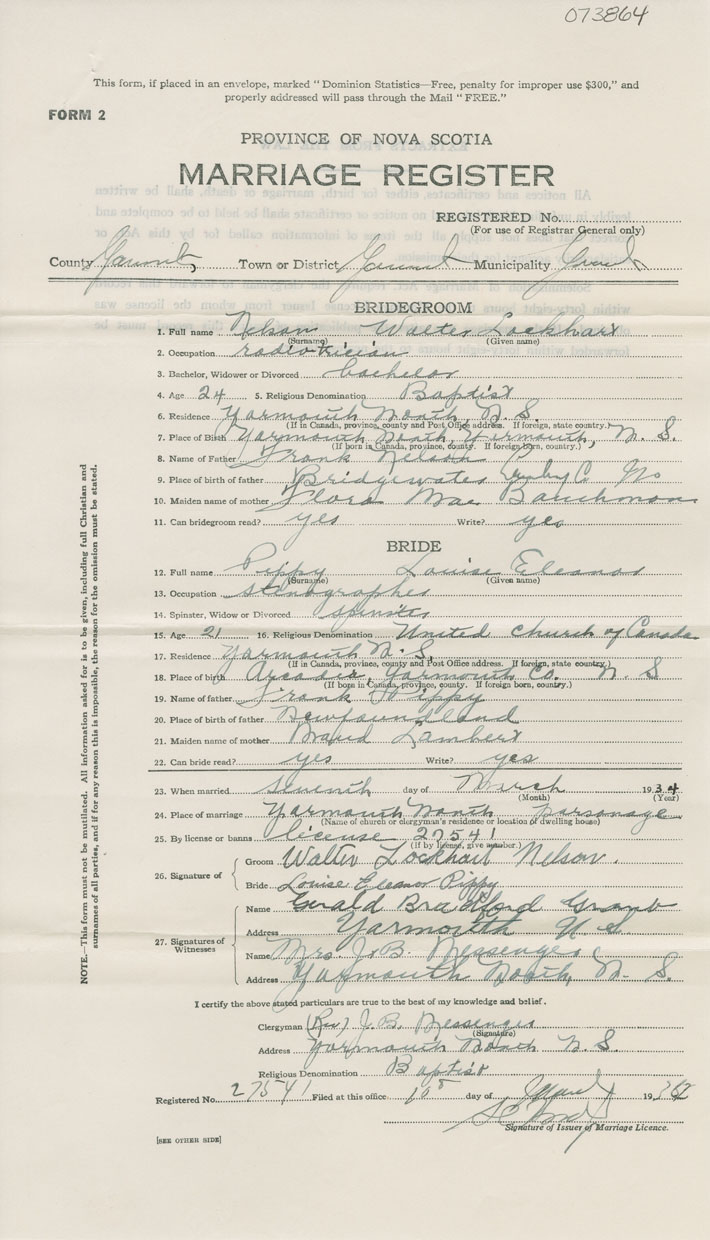 073864
This form, if placed in an envelope, marked "Dominion Statistics—Free, penalty for improper use $300," and
properly addressed will pass through the Mail "FREE."
FORM 2
PROVINCE OF NOVA SCOTIA
MARRIAGE REGISTER
REGISTERED No.
(For use of Registrar General only)
County Yarmouth Town or District Yarmouth Municipality
BRIDEGROOM
1. Full name Nelson Walter Lockhart
(Surname) (Given name)
2. Occupation radiotrician
3. Bachelor, Widower or Divorced bachelor
4. Age 24 5. Religious Denomination Baptist
6. Residence Yarmouth North, N.S.
(If in Canada, province, county and Post Office address. If foreign, state country.)
7. Place of Birth Yarmouth North, Yarmouth, N.S.
(If born in Canada, province, county. If foreign born, country.)
8. Name of Father Frank Nelson
9. Place of birth of father Bridgewater Co
10. Maiden name of mother Flora Mae Bauchman
11. Can bridegroom read? yes Write? yes
BRIDE
12. Full name Pippy Louise Eleanor
(Surname) (Given name)
13. Occupation stenographer
14. Spinster, Widow or Divorced spinster
15. Age 21 16. Religious Denomination United Church of Canada
17. Residence Yarmouth N.S.
(If in Canada, province, county and Post Office address. If foreign, state country.)
18. Place of birth Arcadia, Yarmouth Co. N.S
(If born in Canada, province, county. If foreign born, country.)
19. Name of father Frank Pippy
20. Place of birth of father Newfoundland
21. Maiden name of mother Maud Lambert
22. Can bride read? yes Write? yes
23. When married seventh day of March 1934
(Month) (Year)
24. Place of marriage Yarmouth North Parsonage
(Name of church or clergyman's residence or location of dwelling house)
25. By license or banns license 27541
(If by license, give number.)
26. Signature of
Groom Walter Lockhart Nelson.
Bride Louise Eleanor Pippy
27. Signatures of Witnesses
Name Gerald Bradford Grant
Address Yarmouth N S
Name Mrs. J.B. Messenger
Address Yarmouth North, N.S.
I certify the above stated particulars are true to the best of my knowledge and belief.
Clergyman (Rev) J.B. Messenger
(Signature)
Address Yarmouth North N.S.
Religious Denomination Baptist
Registered No. 27541 Filed at this office 10 day of 19
Signature of Issuer of Marriage Licence.
[SEE OTHER SIDE]
NOTE.—This form must not be mutilated. All information asked for is to be given, including full Christian and
surnames of all parties, and if for any reason this is impossible, the reason for the omission must be stated.